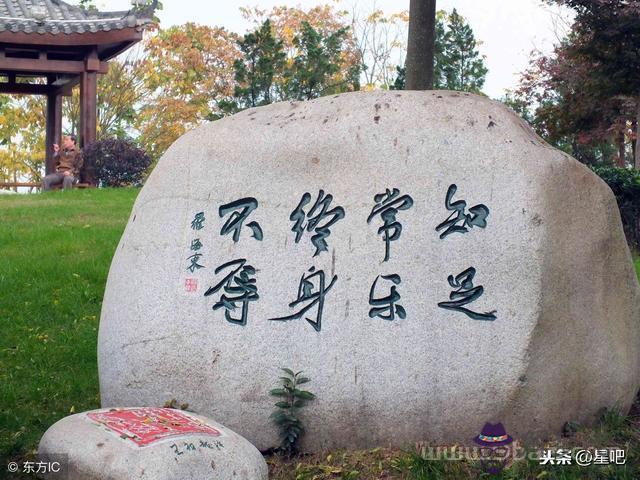 知足
常乐
终身
不辱
© 东方IC
头条 @星吧